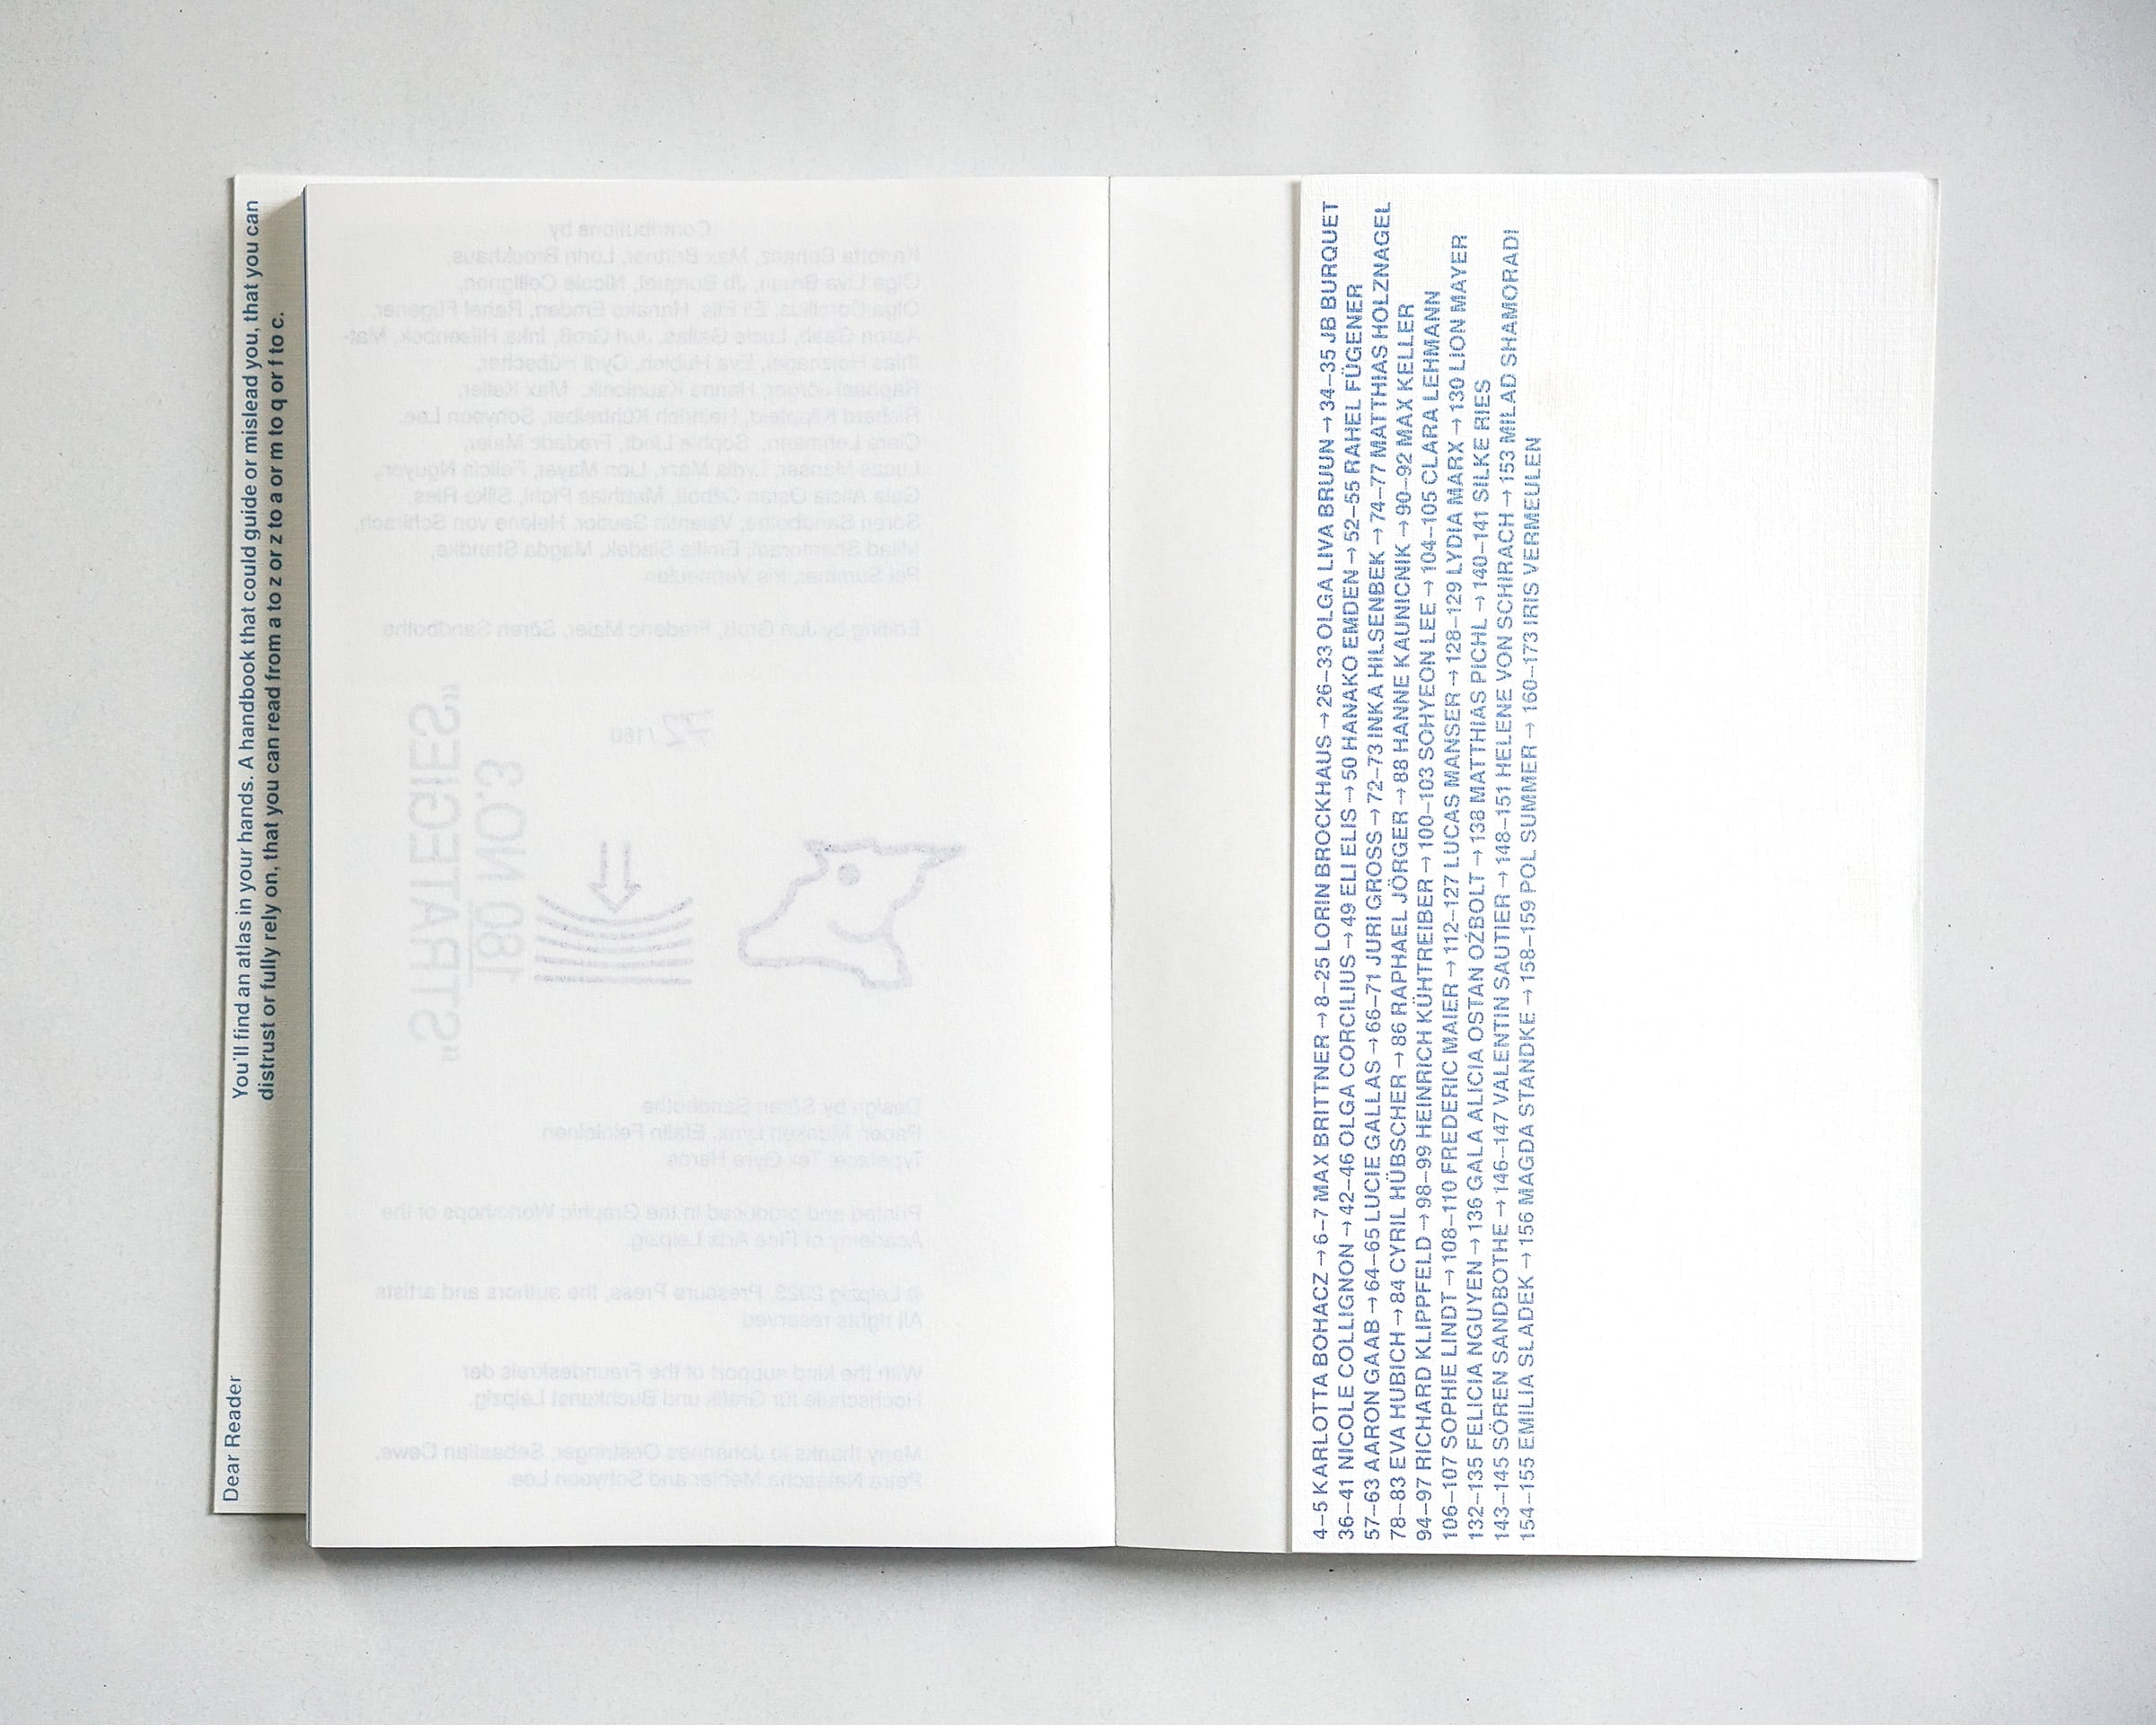 Dear Reader
You'll find an atlas in your hands. A handbook that could guide or mislead you, that you can
distrust or fully rely on, that you can read from a to z or z to a or m to q or f to c.
Contributions by
Karlotta Bohacz, Max Brittner, Lorin Brockhaus,
Olga Liva Bruun, Jb Burquet, Nicole Collignon,
Olga Corcilius, Eli Elis, Hanako Emden, Rahel Fügener,
Aaron Gaab, Lucie Gallas, Juri Groß, Inka Hilsenbeck, Mat-
thias Holznagel, Eva Hubich, Cyril Hübscher,
Raphael Jörger, Hanne Kaunicnik, Max Keller,
Richard Klippfeld, Heinrich Kühtreiber, Sohyeon Lee,
Clara Lehmann, Sophie Lindt, Frederic Maier,
Lucas Manser, Lydia Marx, Lion Mayer, Felicia Nguyen,
Gala Alicia Ostan Ožbolt, Matthias Pichl, Silke Ries,
Sören Sandbothe, Valentin Sautier, Helene von Schirach,
Milad Shamoradi, Emilia Sladek, Magda Standke,
Pol Summer, Iris Vermeulen
Editing by Juri Groß, Frederic Maier, Sören Sandbothe
/180
"STRATEGIES"
180 NO.3
Design by Sören Sandbothe
Paper: Munken Lynx, Efalin Feinleinen
Typeface: Tex Gyre Heros
Printed and produced in the Graphic Workshops of the
Academy of Fine Arts Leipzig.
© Leipzig 2023, Pressure Press, the authors and artists
All rights reserved
With the kind support of the Freundeskreis der
Hochschule für Grafik und Buchkunst Leipzig.
Many thanks to Johannes Oestringer, Sebastian Gewe,
Petra Natascha Mehler and Sohyeon Lee.
4–5 KARLOTTA BOHACZ → 6–7 MAX BRITTNER → 8–25 LORIN BROCKHAUS → 26–33 OLGA LIVA BRUUN → 34–35 JB BURQUET
36–41 NICOLE COLLIGNON → 42–46 OLGA CORCILIUS → 49 ELI ELIS → 50 HANAKO EMDEN → 52–55 RAHEL FÜGENER
57–63 AARON GAAB → 64–65 LUCIE GALLAS → 66–71 JURI GROSS → 72–73 INKA HILSENBEK → 74–77 MATTHIAS HOLZNAGEL
78–83 EVA HUBICH → 84 CYRIL HÜBSCHER → 86 RAPHAEL JÖRGER → 88 HANNE KAUNICNIK → 90–92 MAX KELLER
94–97 RICHARD KLIPPFELD → 98–99 HEINRICH KÜHTREIBER → 100–103 SOHYEON LEE → 104–105 CLARA LEHMANN
106–107 SOPHIE LINDT → 108–110 FREDERIC MAIER → 112–127 LUCAS MANSER → 128–129 LYDIA MARX → 130 LION MAYER
132–135 FELICIA NGUYEN → 136 GALA ALICIA OSTAN OŽBOLT → 138 MATTHIAS PICHL → 140–141 SILKE RIES
143–145 SÖREN SANDBOTHE → 146–147 VALENTIN SAUTIER → 148–151 HELENE VON SCHIRACH → 153 MILAD SHAMORADI
154–155 EMILIA SLADEK → 156 MAGDA STANDKE → 158–159 POL SUMMER → 160–173 IRIS VERMEULEN